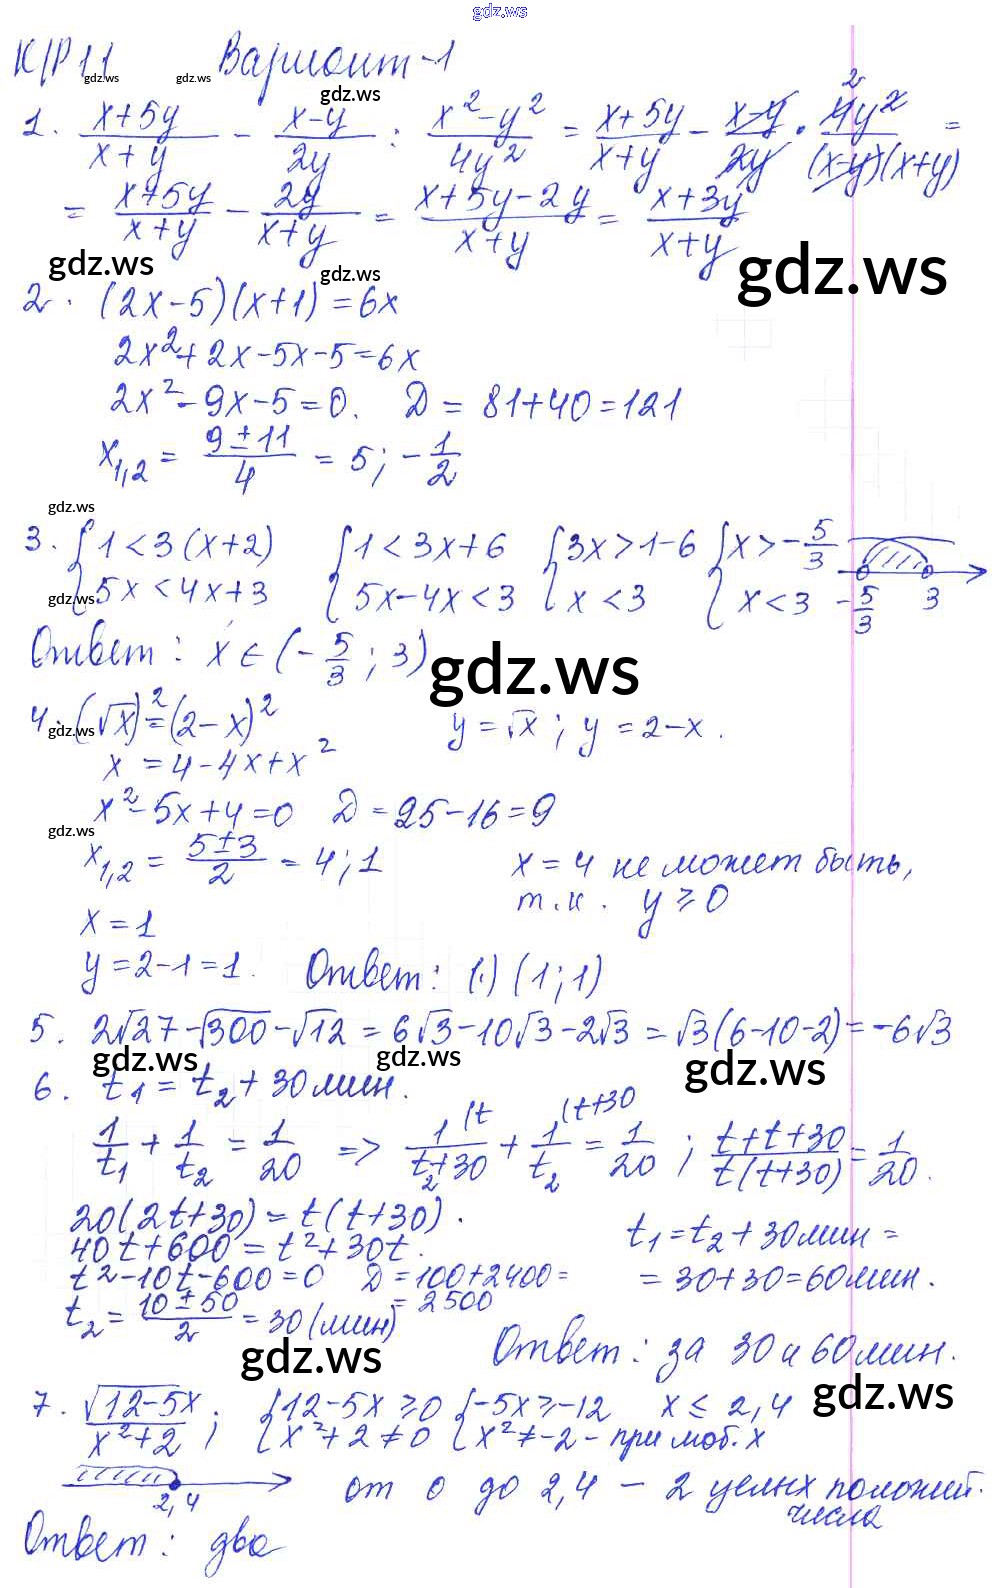 gdz.ws
К/Р 11 Вариант-1
gdz.ws gdz.ws gdz.ws
1. (x+5y)/(x+y) - (x-y)/(2y) : (x²-y²)/(4y²) = (x+5y)/(x+y) - (x-y)/(2y) · (4y²)/((x-y)(x+y)) =
= (x+5y)/(x+y) - (2y)/(x+y) = (x+5y-2y)/(x+y) = (x+3y)/(x+y)
gdz.ws gdz.ws gdz.ws
2. (2x-5)(x+1)=6x
2x²+2x-5x-5=6x
2x²-9x-5=0. Д = 81+40=121
x₁,₂ = (9±11)/4 = 5; -1/2
gdz.ws
3. {1<3(x+2) {1<3x+6 {3x>1-6 {x>-5/3
5x<4x+3 5x-4x<3 x<3 x<3 -5/3 3
gdz.ws
Ответ: x∈(-5/3; 3)
gdz.ws
4. (√x)²=(2-x)² y=√x; y=2-x.
gdz.ws
x = 4-4x+x²
x²-5x+4=0 Д=25-16=9
gdz.ws
x₁,₂ = (5±3)/2 = 4; 1 x=4 не может быть,
т.к. y≥0
x=1
y=2-1=1. Ответ: (·) (1;1)
5. 2√27-√300-√12 = 6√3-10√3-2√3 = √3(6-10-2)=-6√3
gdz.ws gdz.ws gdz.ws
6. t₁=t₂+30мин.
1/t₁ + 1/t₂ = 1/20 => 1(t/(t₂+30) + 1(t+30/t₂ = 1/20; (t+t+30)/(t(t+30)) = 1/20.
20(2t+30)=t(t+30).
40t+600=t²+30t. t₁=t₂+30мин=
t²-10t-600=0 Д=100+2400= =30+30=60мин.
=2500
t₂=(10±50)/2=30(мин)
gdz.ws
Ответ: за 30 и 60мин.
gdz.ws
7. √(12-5x)/(x²+2); {12-5x≥0 {-5x≥-12 x≤2,4
x²+2≠0 x²≠-2 - при люб. x
2,4 от 0 до 2,4 - 2 целых положит.
числа
Ответ: два